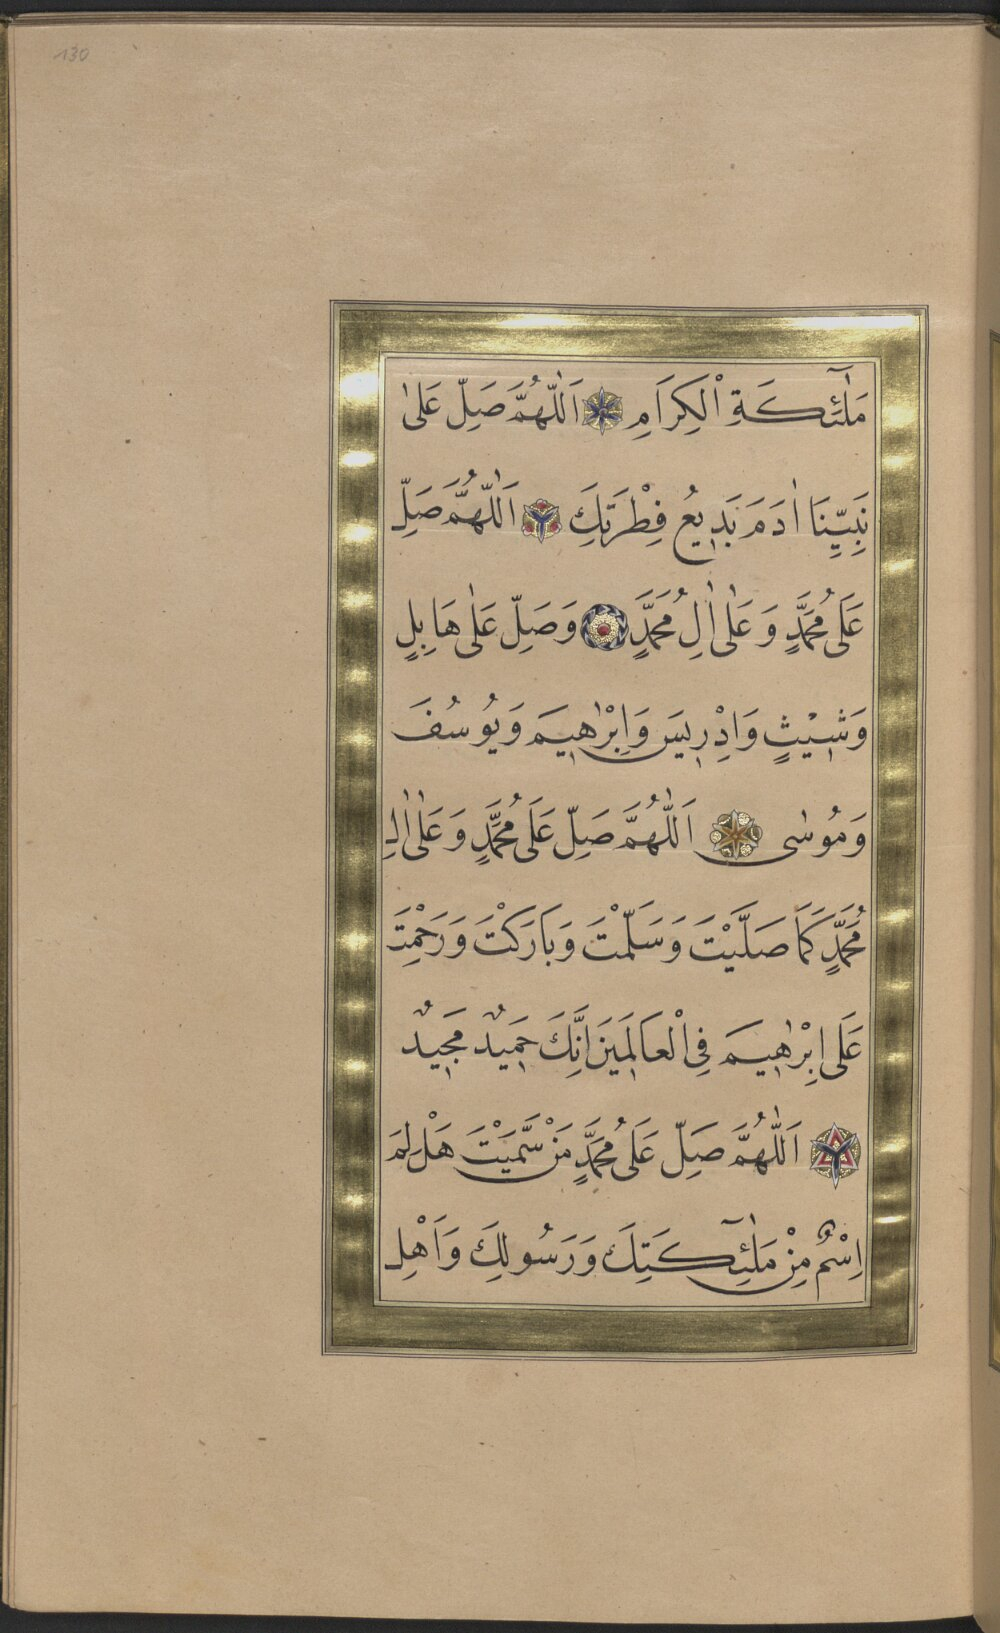 130
مَلٰٓئِكَةِ الْكِرَامِ اَللّٰهُمَّ صَلِّ عَلٰى
نَبِيِّنَا اٰدَمَ بَدِيعُ فِطْرَتِكَ اَللّٰهُمَّ صَلِّ
عَلَى مُحَمَّدٍ وَ عَلٰى اٰلِ مُحَمَّدٍ وَصَلِّ عَلٰى هَابِلٍ
وَشِيْثٍ وَاِدْرِيسَ وَاِبْرٰهِيمَ وَيُوسُفَ
وَمُوسٰى اَللّٰهُمَّ صَلِّ عَلَى مُحَمَّدٍ وَ عَلٰى اٰلِ
مُحَمَّدٍ كَمَا صَلَّيْتَ وَسَلَّمْتَ وَبَارَكْتَ وَرَحْمِتَ
عَلَى اِبْرٰهِيمَ فِى الْعَالَمِينَ اِنَّكَ حَمِيدٌ مَجِيدٌ
اَللّٰهُمَّ صَلِّ عَلَى مُحَمَّدٍ مَنْ سَمَّيْتَ هَلْ لَمَ
اِسْمٌ مِنْ مَلٰٓئِكَتِكَ وَرَسُولِكَ وَاَهْلِ